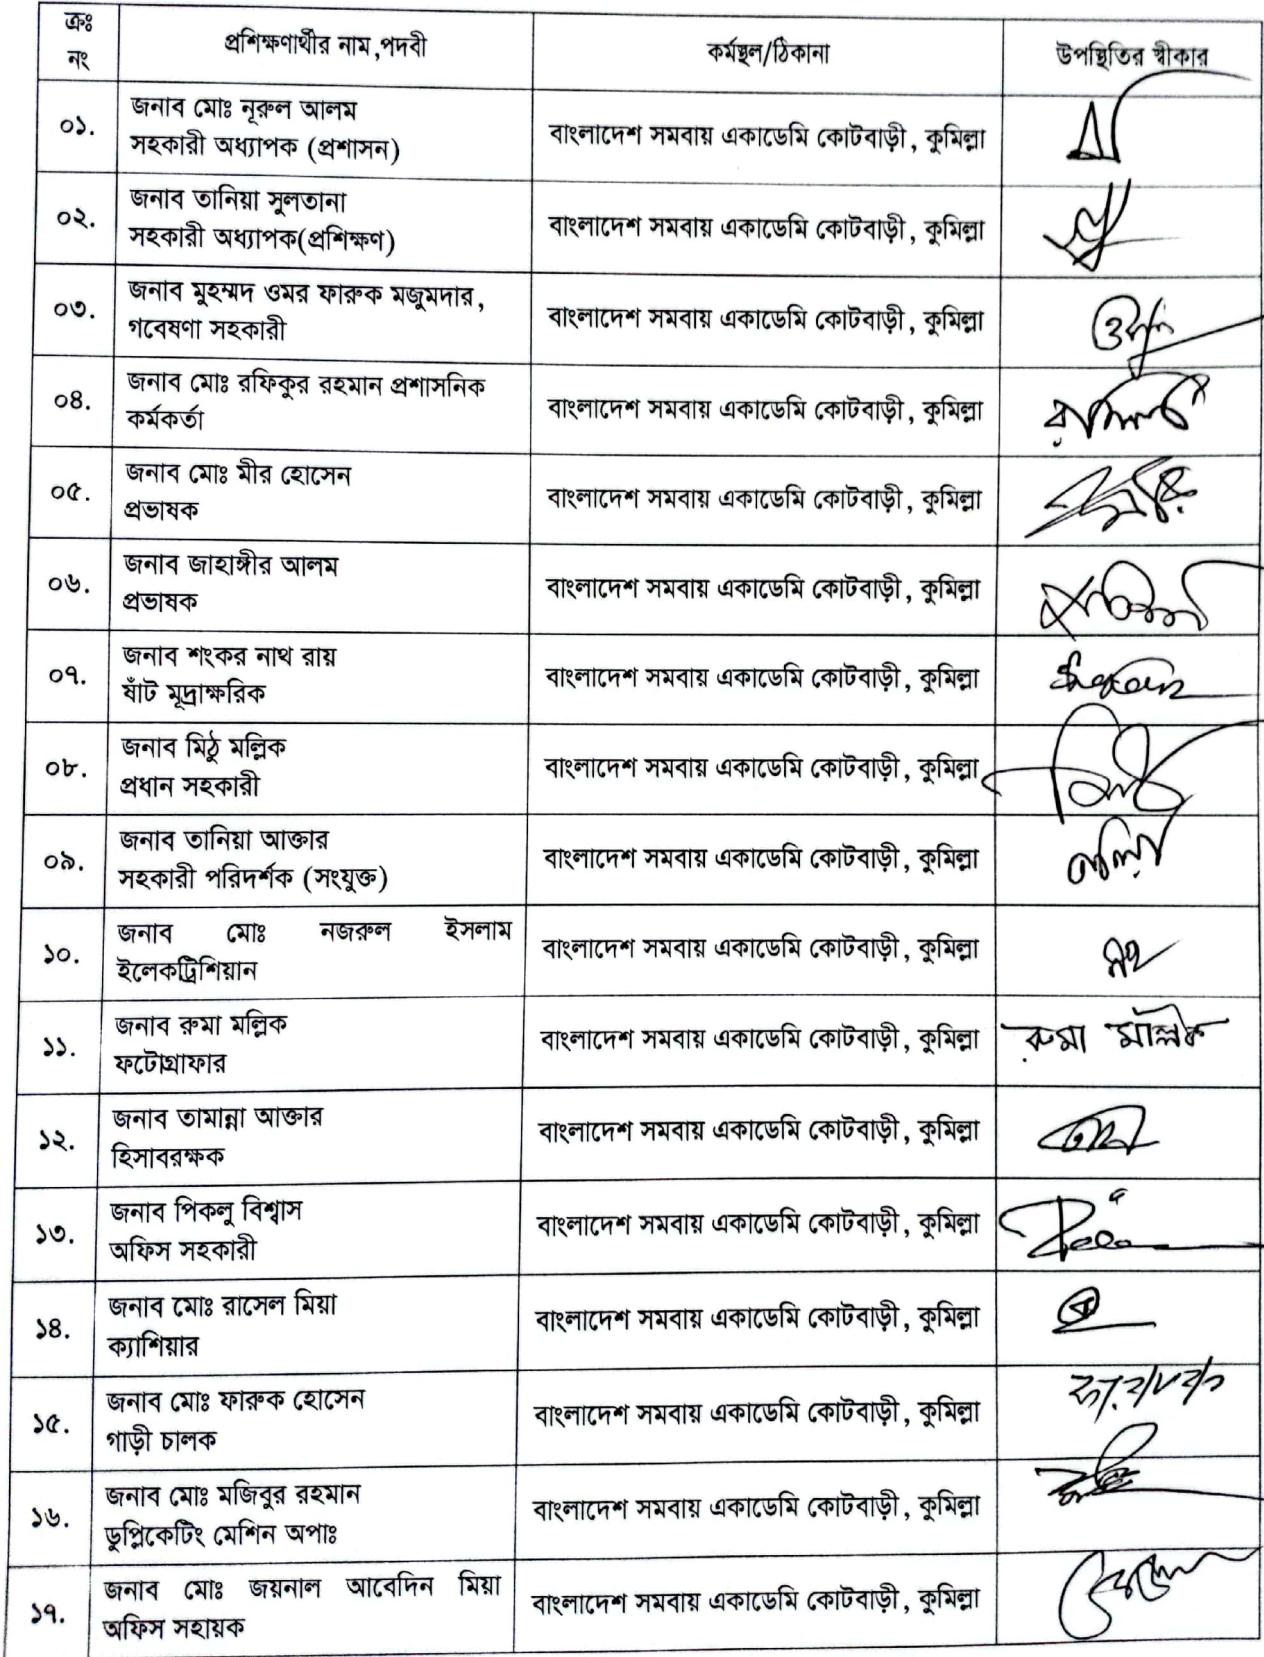 ক্রঃ
নং
প্রশিক্ষণার্থীর নাম,পদবী
কর্মস্থল/ঠিকানা
উপস্থিতির স্বীকার
০১.
জনাব মোঃ নূরুল আলম
সহকারী অধ্যাপক (প্রশাসন)
বাংলাদেশ সমবায় একাডেমি কোটবাড়ী, কুমিল্লা
০২.
জনাব তানিয়া সুলতানা
সহকারী অধ্যাপক(প্রশিক্ষণ)
বাংলাদেশ সমবায় একাডেমি কোটবাড়ী, কুমিল্লা
০৩.
জনাব মুহম্মদ ওমর ফারুক মজুমদার,
গবেষণা সহকারী
বাংলাদেশ সমবায় একাডেমি কোটবাড়ী, কুমিল্লা
০৪.
জনাব মোঃ রফিকুর রহমান প্রশাসনিক
কর্মকর্তা
বাংলাদেশ সমবায় একাডেমি কোটবাড়ী, কুমিল্লা
০৫.
জনাব মোঃ মীর হোসেন
প্রভাষক
বাংলাদেশ সমবায় একাডেমি কোটবাড়ী, কুমিল্লা
০৬.
জনাব জাহাঙ্গীর আলম
প্রভাষক
বাংলাদেশ সমবায় একাডেমি কোটবাড়ী, কুমিল্লা
০৭.
জনাব শংকর নাথ রায়
ষাঁট মূদ্রাক্ষরিক
বাংলাদেশ সমবায় একাডেমি কোটবাড়ী, কুমিল্লা
০৮.
জনাব মিঠু মল্লিক
প্রধান সহকারী
বাংলাদেশ সমবায় একাডেমি কোটবাড়ী, কুমিল্লা
০৯.
জনাব তানিয়া আক্তার
সহকারী পরিদর্শক (সংযুক্ত)
বাংলাদেশ সমবায় একাডেমি কোটবাড়ী, কুমিল্লা
১০.
জনাব মোঃ নজরুল ইসলাম
ইলেকট্রিশিয়ান
বাংলাদেশ সমবায় একাডেমি কোটবাড়ী, কুমিল্লা
১১.
জনাব রুমা মল্লিক
ফটোগ্রাফার
বাংলাদেশ সমবায় একাডেমি কোটবাড়ী, কুমিল্লা
রুমা মল্লিক
১২.
জনাব তামান্না আক্তার
হিসাবরক্ষক
বাংলাদেশ সমবায় একাডেমি কোটবাড়ী, কুমিল্লা
১৩.
জনাব পিকলু বিশ্বাস
অফিস সহকারী
বাংলাদেশ সমবায় একাডেমি কোটবাড়ী, কুমিল্লা
১৪.
জনাব মোঃ রাসেল মিয়া
ক্যাশিয়ার
বাংলাদেশ সমবায় একাডেমি কোটবাড়ী, কুমিল্লা
১৫.
জনাব মোঃ ফারুক হোসেন
গাড়ী চালক
বাংলাদেশ সমবায় একাডেমি কোটবাড়ী, কুমিল্লা
১৬.
জনাব মোঃ মজিবুর রহমান
ডুপ্লিকেটিং মেশিন অপাঃ
বাংলাদেশ সমবায় একাডেমি কোটবাড়ী, কুমিল্লা
১৭.
জনাব মোঃ জয়নাল আবেদিন মিয়া
অফিস সহায়ক
বাংলাদেশ সমবায় একাডেমি কোটবাড়ী, কুমিল্লা